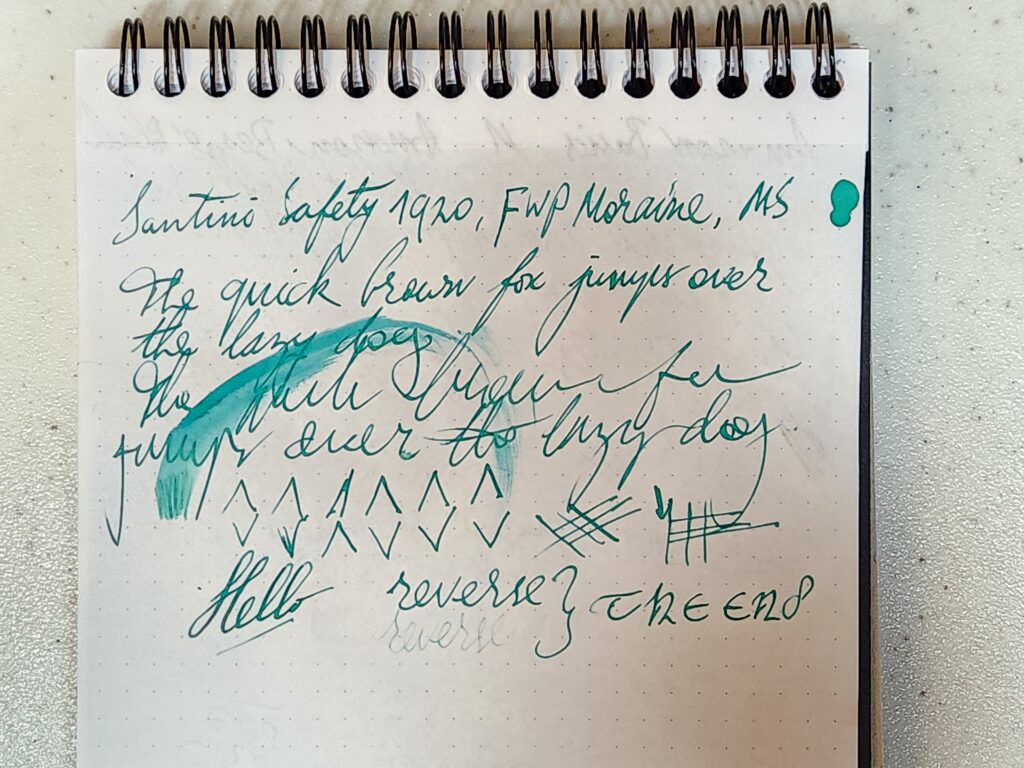 Santini Safety 1920, FWP Moraine, MS
The quick brown fox jumps over
the lazy dog.
The quick brown fox
jumps over the lazy dog.
Hello reverse } THE END
reverse